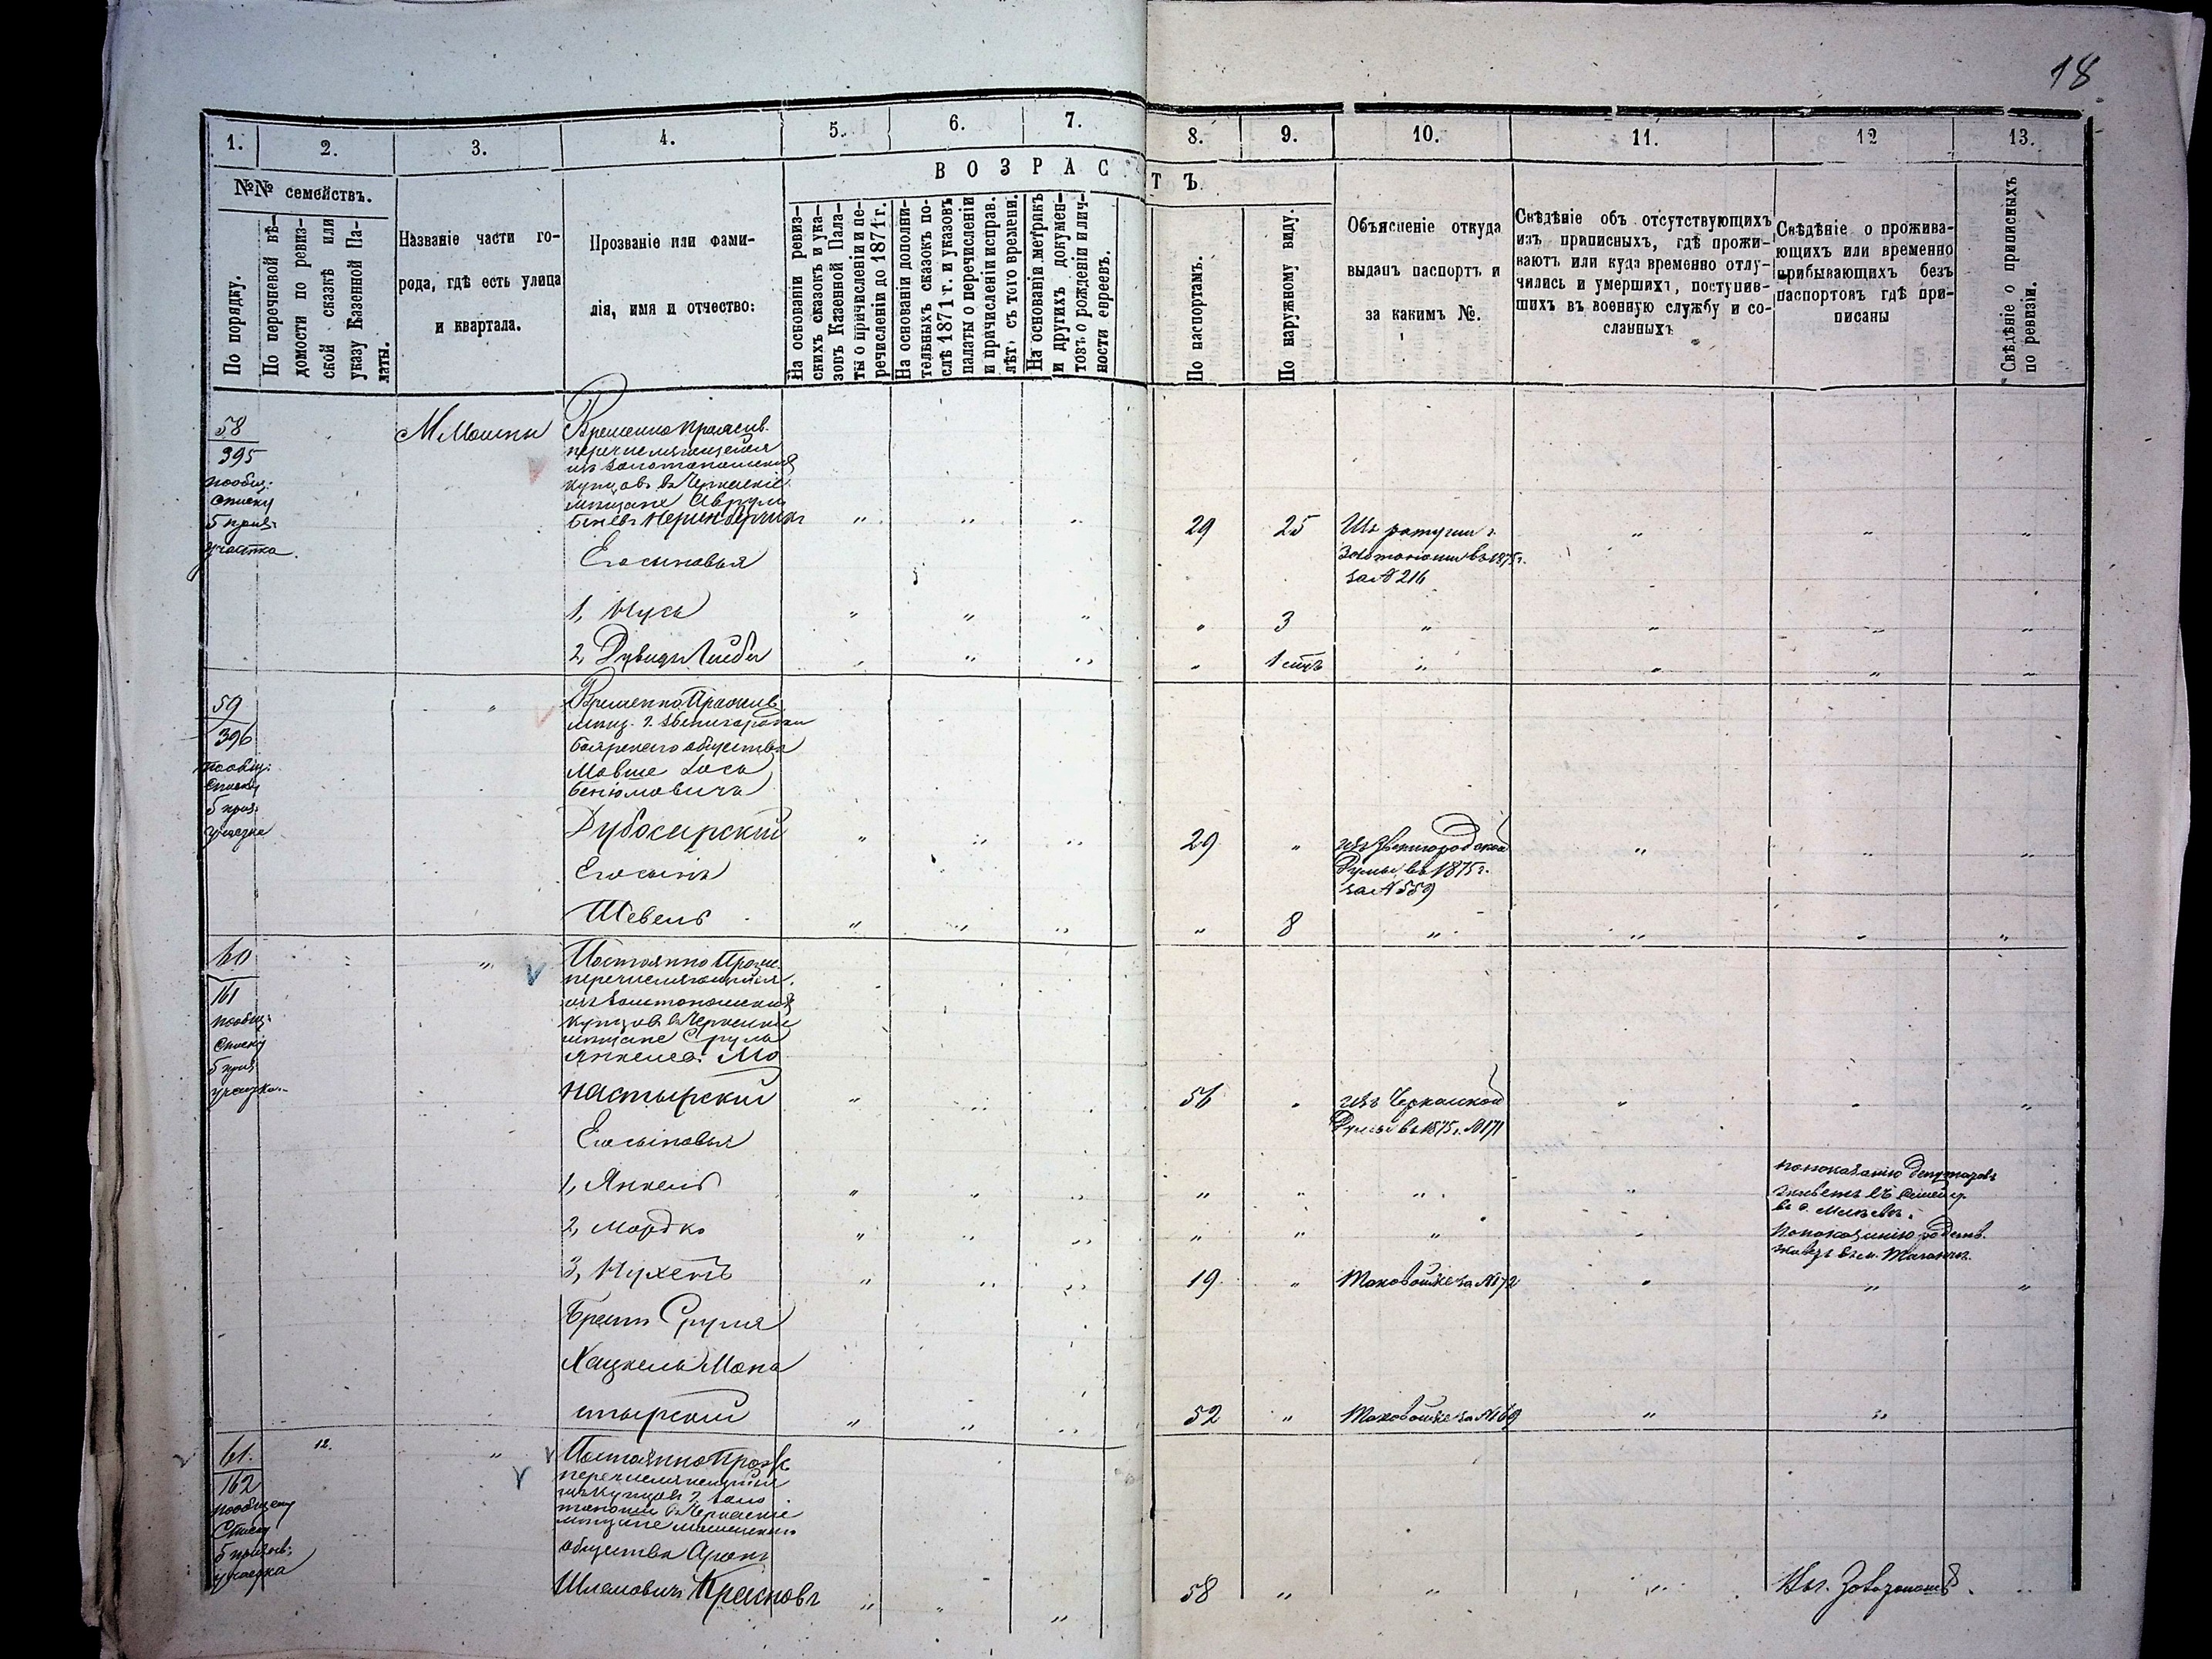 18
1. 2. 3. 4. 5. 6. 7. 8. 9. 10. 11. 12 13.
№№ семействъ.
ВОЗРАСТЪ.
По порядку.
По перечневой вѣ-
домости по ревиз-
ской сказкѣ или
указу Казенной Па-
латы.
Названіе части го-
рода, гдѣ есть улица
и квартала.
Прозваніе или фами-
лія, имя и отчество:
На основаніи ревиз-
скихъ сказокъ и ука-
зовъ Казенной Пала-
ты о причисленіи и пе-
речисленіи до 1871 г.
На основаніи дополни-
тельныхъ сказокъ по-
слѣ 1871 г. и указовъ
палаты о перечисленіи
и причисленіи исправ.
лѣтъ съ того времени.
На основаніи метрикъ
и другихъ докумен-
товъ о рожденіи и лич-
ности евреевъ.
По паспортамъ.
По наружному виду.
Объясненіе откуда
выданъ паспортъ и
за какимъ №.
Свѣдѣніе объ отсутствующихъ
изъ приписныхъ, гдѣ прожи-
ваютъ или куда временно отлу-
чились и умершихъ, поступив-
шихъ въ военную службу и со-
сланныхъ
Свѣдѣніе о прожива-
ющихъ или временно
прибывающихъ безъ
паспортовъ гдѣ при-
писаны
Свѣдѣніе о приписныхъ
по ревизіи.
58
395
пообщ:
списку
5 приз.
участка.
М Мошны
Временно Прожив.
перечисляющейся
изъ золотоношских
купцов въ Черкаскіе
мещане Аврум
" " " 29 25 Из ратуши г.
Золотоноши въ 1875 г.
за № 216 " " "
Его сыновья
1, Нусь " " " " 3 " " " "
2, Дувидъ Лейбъ " " " " " " " "
59
396
пообщ:
списку
5 приз.
участка
"
Временно Прожив.
мещ. г. Звенигородки
боярского общества
Мовше Іось
Бенюмовичъ
Дубосарский " " " 29 " изъ Звенигородской
Думы въ 1875 г.
за № 559 " " "
Его сынъ
Шевель " " " " 8 " " " "
60
161
пообщ:
списку
5 приз
участка
"
Постоянно Прож.
перечисляющийся
изъ золотоношских
купцов въ Черкаские
мещане Сруль
Янкелев. Мо
настырский " " " 56 " изъ Черкаской
Думы въ 1875 г. № 171 " " "
Его сыновья
1, Янкель " " " " " " " по показанию депутатов
живетъ съ семейст.
2, Мордко " " " " " " " По показанію родств.
3, Нухемъ " " " 19 " Таковой же за № 172 " " "
Братъ Сруля
Хацкель Мона
стырский " " " 52 " Таковой же за № 169 " "
61. 12.
162
пообщему
списку
5 призыв:
участка
"
Постоянно Прож
перечисляющийся
изъ купцовъ г. Золо
тоноши въ Черкаскіе
мещане мошенского
общества Аронъ
Шлемовичъ Красновъ " " " 58 " " "